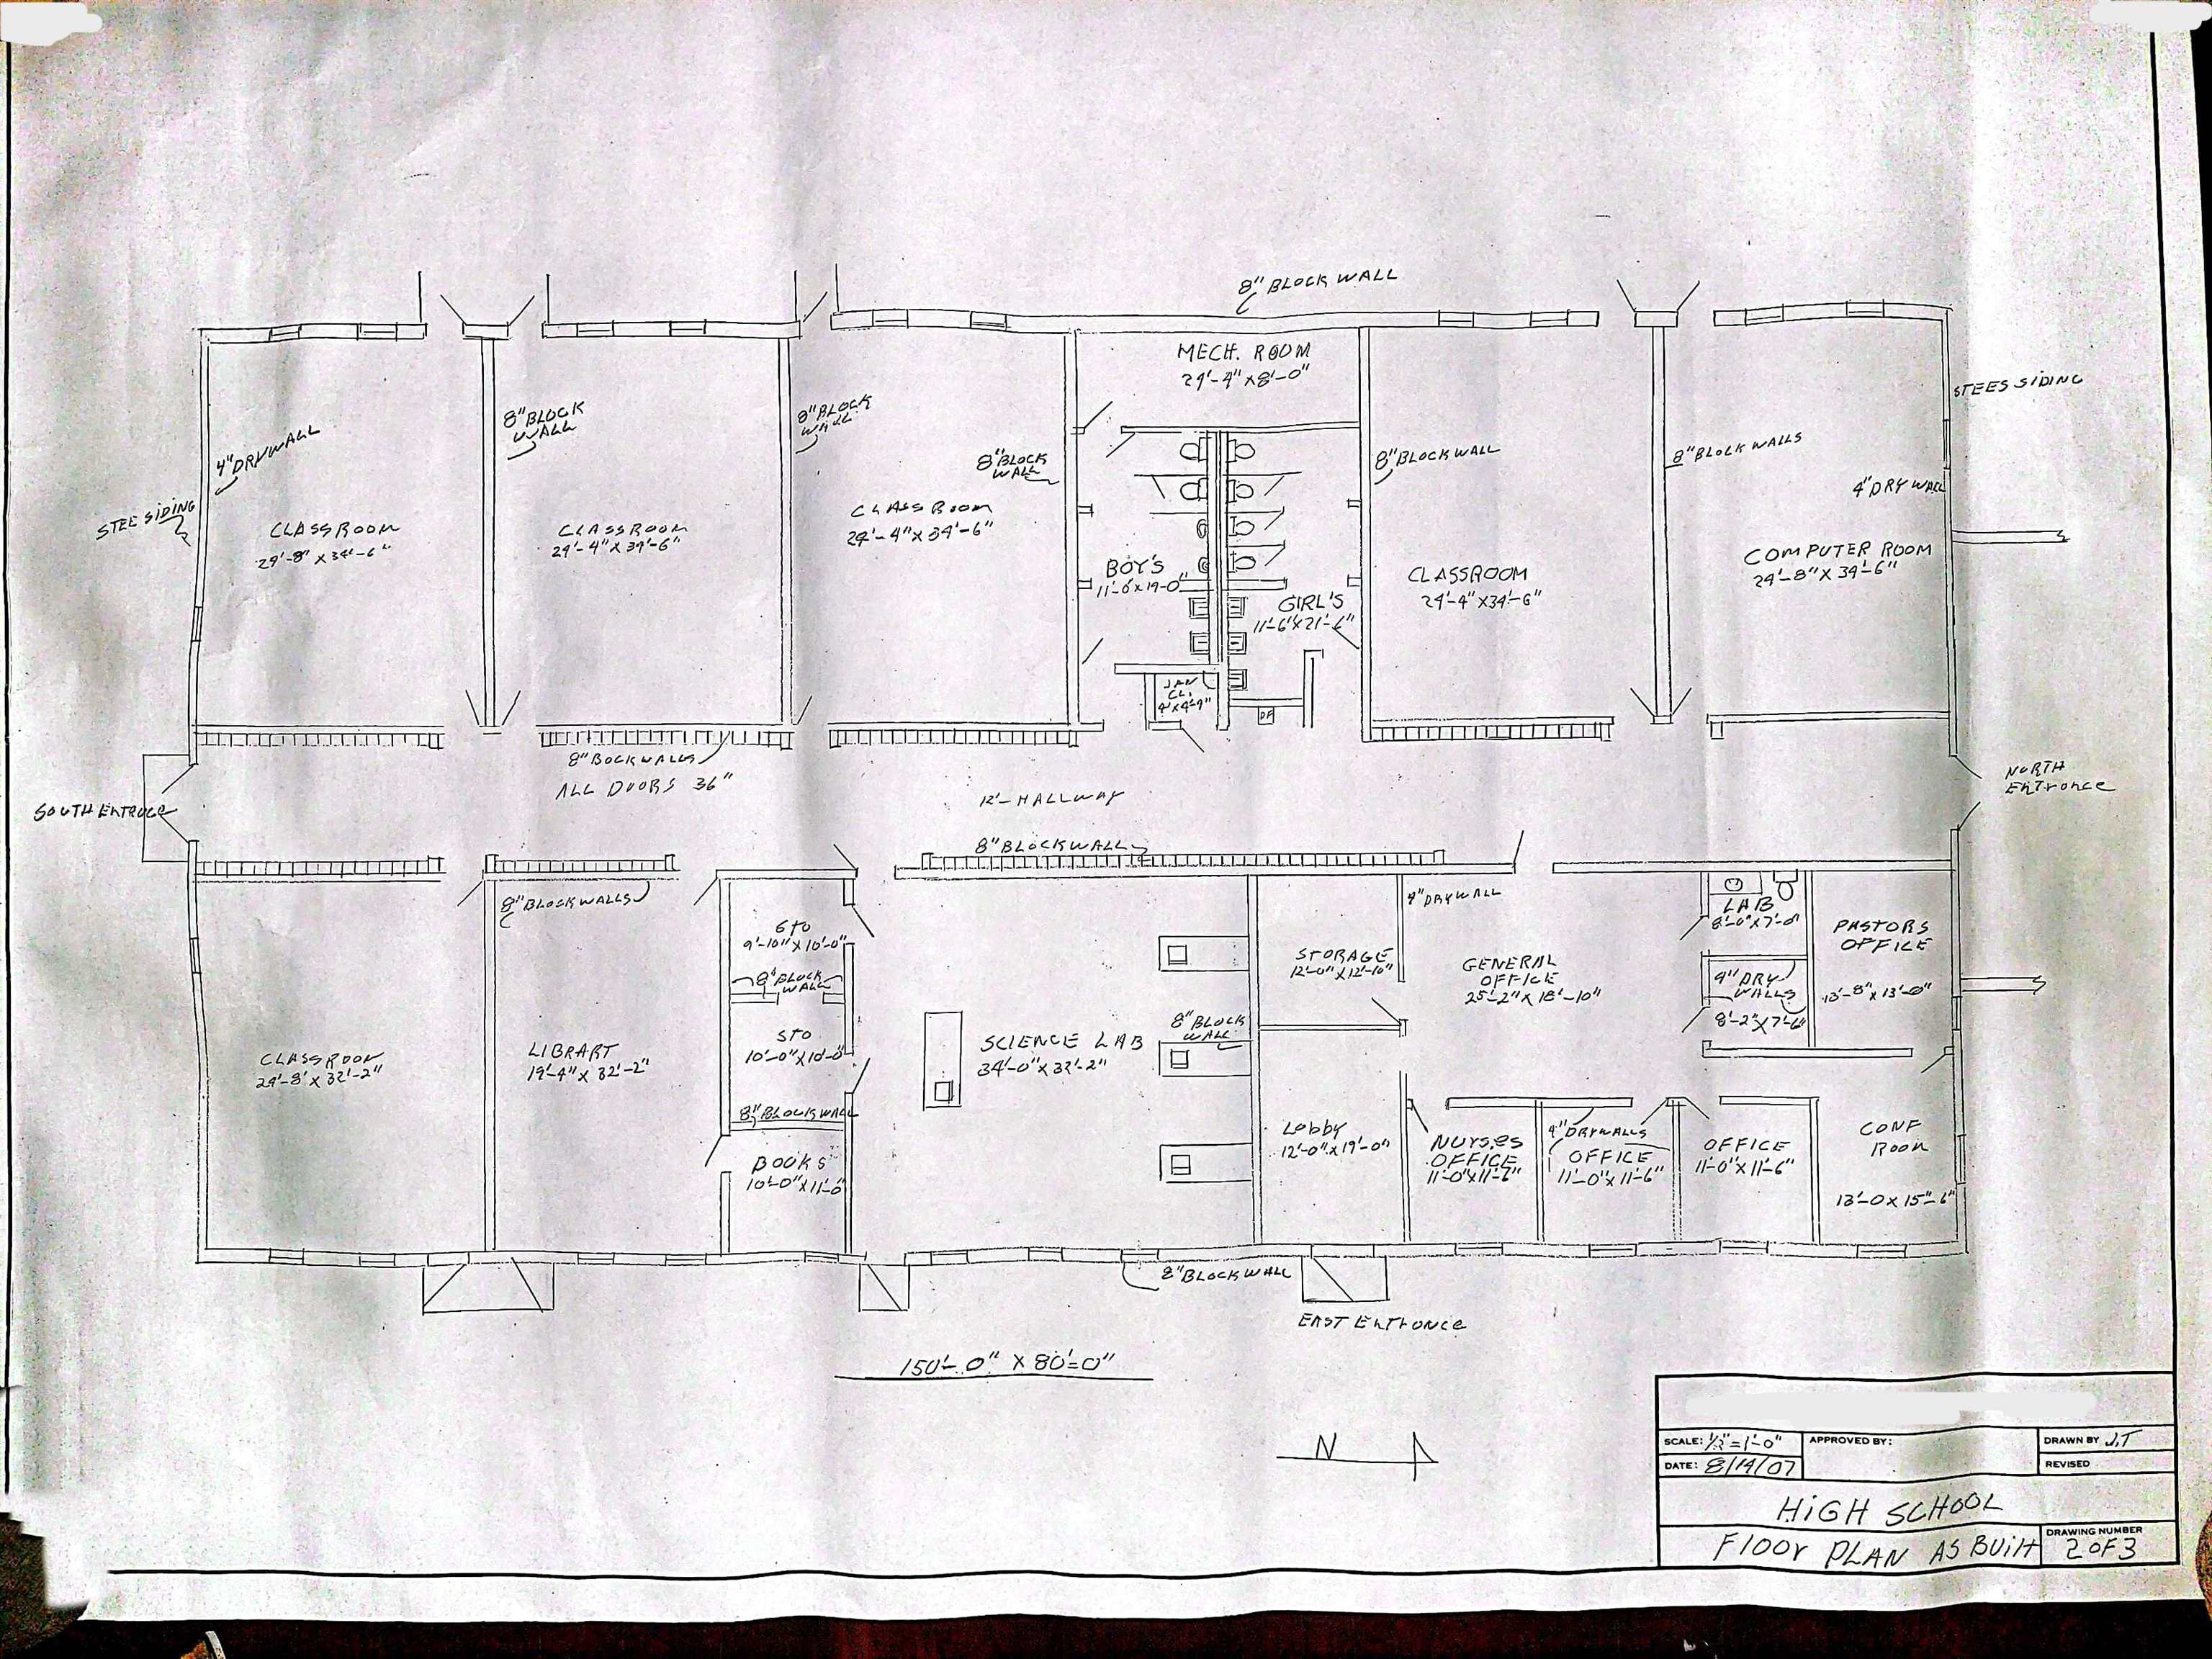 8" BLOCK WALL
MECH. ROOM
24'-4" X 8'-0"
STEES SIDING
8" BLOCK
WALL
8" BLOCK
WALL
4" DRYWALL
8" BLOCK
WALL
8" BLOCK WALL
8" BLOCK WALLS
4" DRY WALL
STEE SIDING
CLASSROOM
24'-8" X 34'-6"
CLASSROOM
24'-4" X 34'-6"
CLASSROOM
24'-4" X 34'-6"
BOY'S
11'-6 X 19-0"
GIRL'S
11'-6" X 21'-6"
CLASSROOM
24'-4" X 34'-6"
COMPUTER ROOM
24'-8" X 34'-6"
JAN
CL.
4' X 4'-4"
DF
8" BOCK WALLS
ALL DOORS 36"
12'- HALLWAY
SOUTH ENTRNCE
NORTH
Entronce
8" BLOCK WALL
8" BLOCK WALLS
STO
9'-10" X 10'-0"
8" BLOCK
WALL
STO
10'-0" X 10'-0"
8" BLOCK WALL
BOOKS
10'-0" X 11'-0"
CLASSROOM
24'-8' X 32'-2"
LIBRART
19'-4" X 32'-2"
SCIENCE LAB
34'-0" X 32'-2"
8" BLOCK
WALL
STORAGE
12'-0" X 12'-10"
4" DRYWALL
GENERAL
OFFICE
25'-2" X 18'-10"
LAB
8'-0" X 7'-0"
PASTORS
OFFICE
13'-8" X 13'-0"
4" DRY
WALLS
8'-2" X 7'-6"
Lobby
12'-0" X 19'-0"
NURSES
OFFICE
11'-0" X 11'-7"
4" DRYWALLS
OFFICE
11'-0" X 11'-6"
OFFICE
11'-0" X 11'-6"
CONF
ROOM
13'-0 X 15"-6"
8" BLOCK WALL
EAST ENTronce
150'-0" X 80'=0"
N
SCALE: 1/8" = 1'-0"
APPROVED BY:
DRAWN BY J.T
DATE: 8/14/07
REVISED
HIGH SCHOOL
FLOOR PLAN AS BUILT
DRAWING NUMBER
2 OF 3